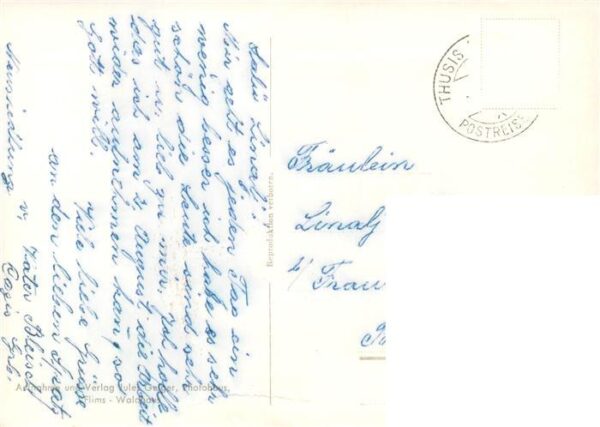 Salü Linalj!
Mir geht es jeden Tag ein
wenig besser ich habe es sehr
schön die Leute sind sehr
gut u. lieb zu mir. Ich hoffe
das ich am 2. August die Arbeit
wider aufnehmen kann, so
Gott will.
Viele liebe Grüsse
an den lieben
v. Vater
Cazis Grb.
Fräulein
Linalj
b/ Frau
Reproduktion verboten.
Aufnahme und Verlag Jules Geiger, Photohaus,
Flims - Waldhaus
THUSIS
POSTREISE